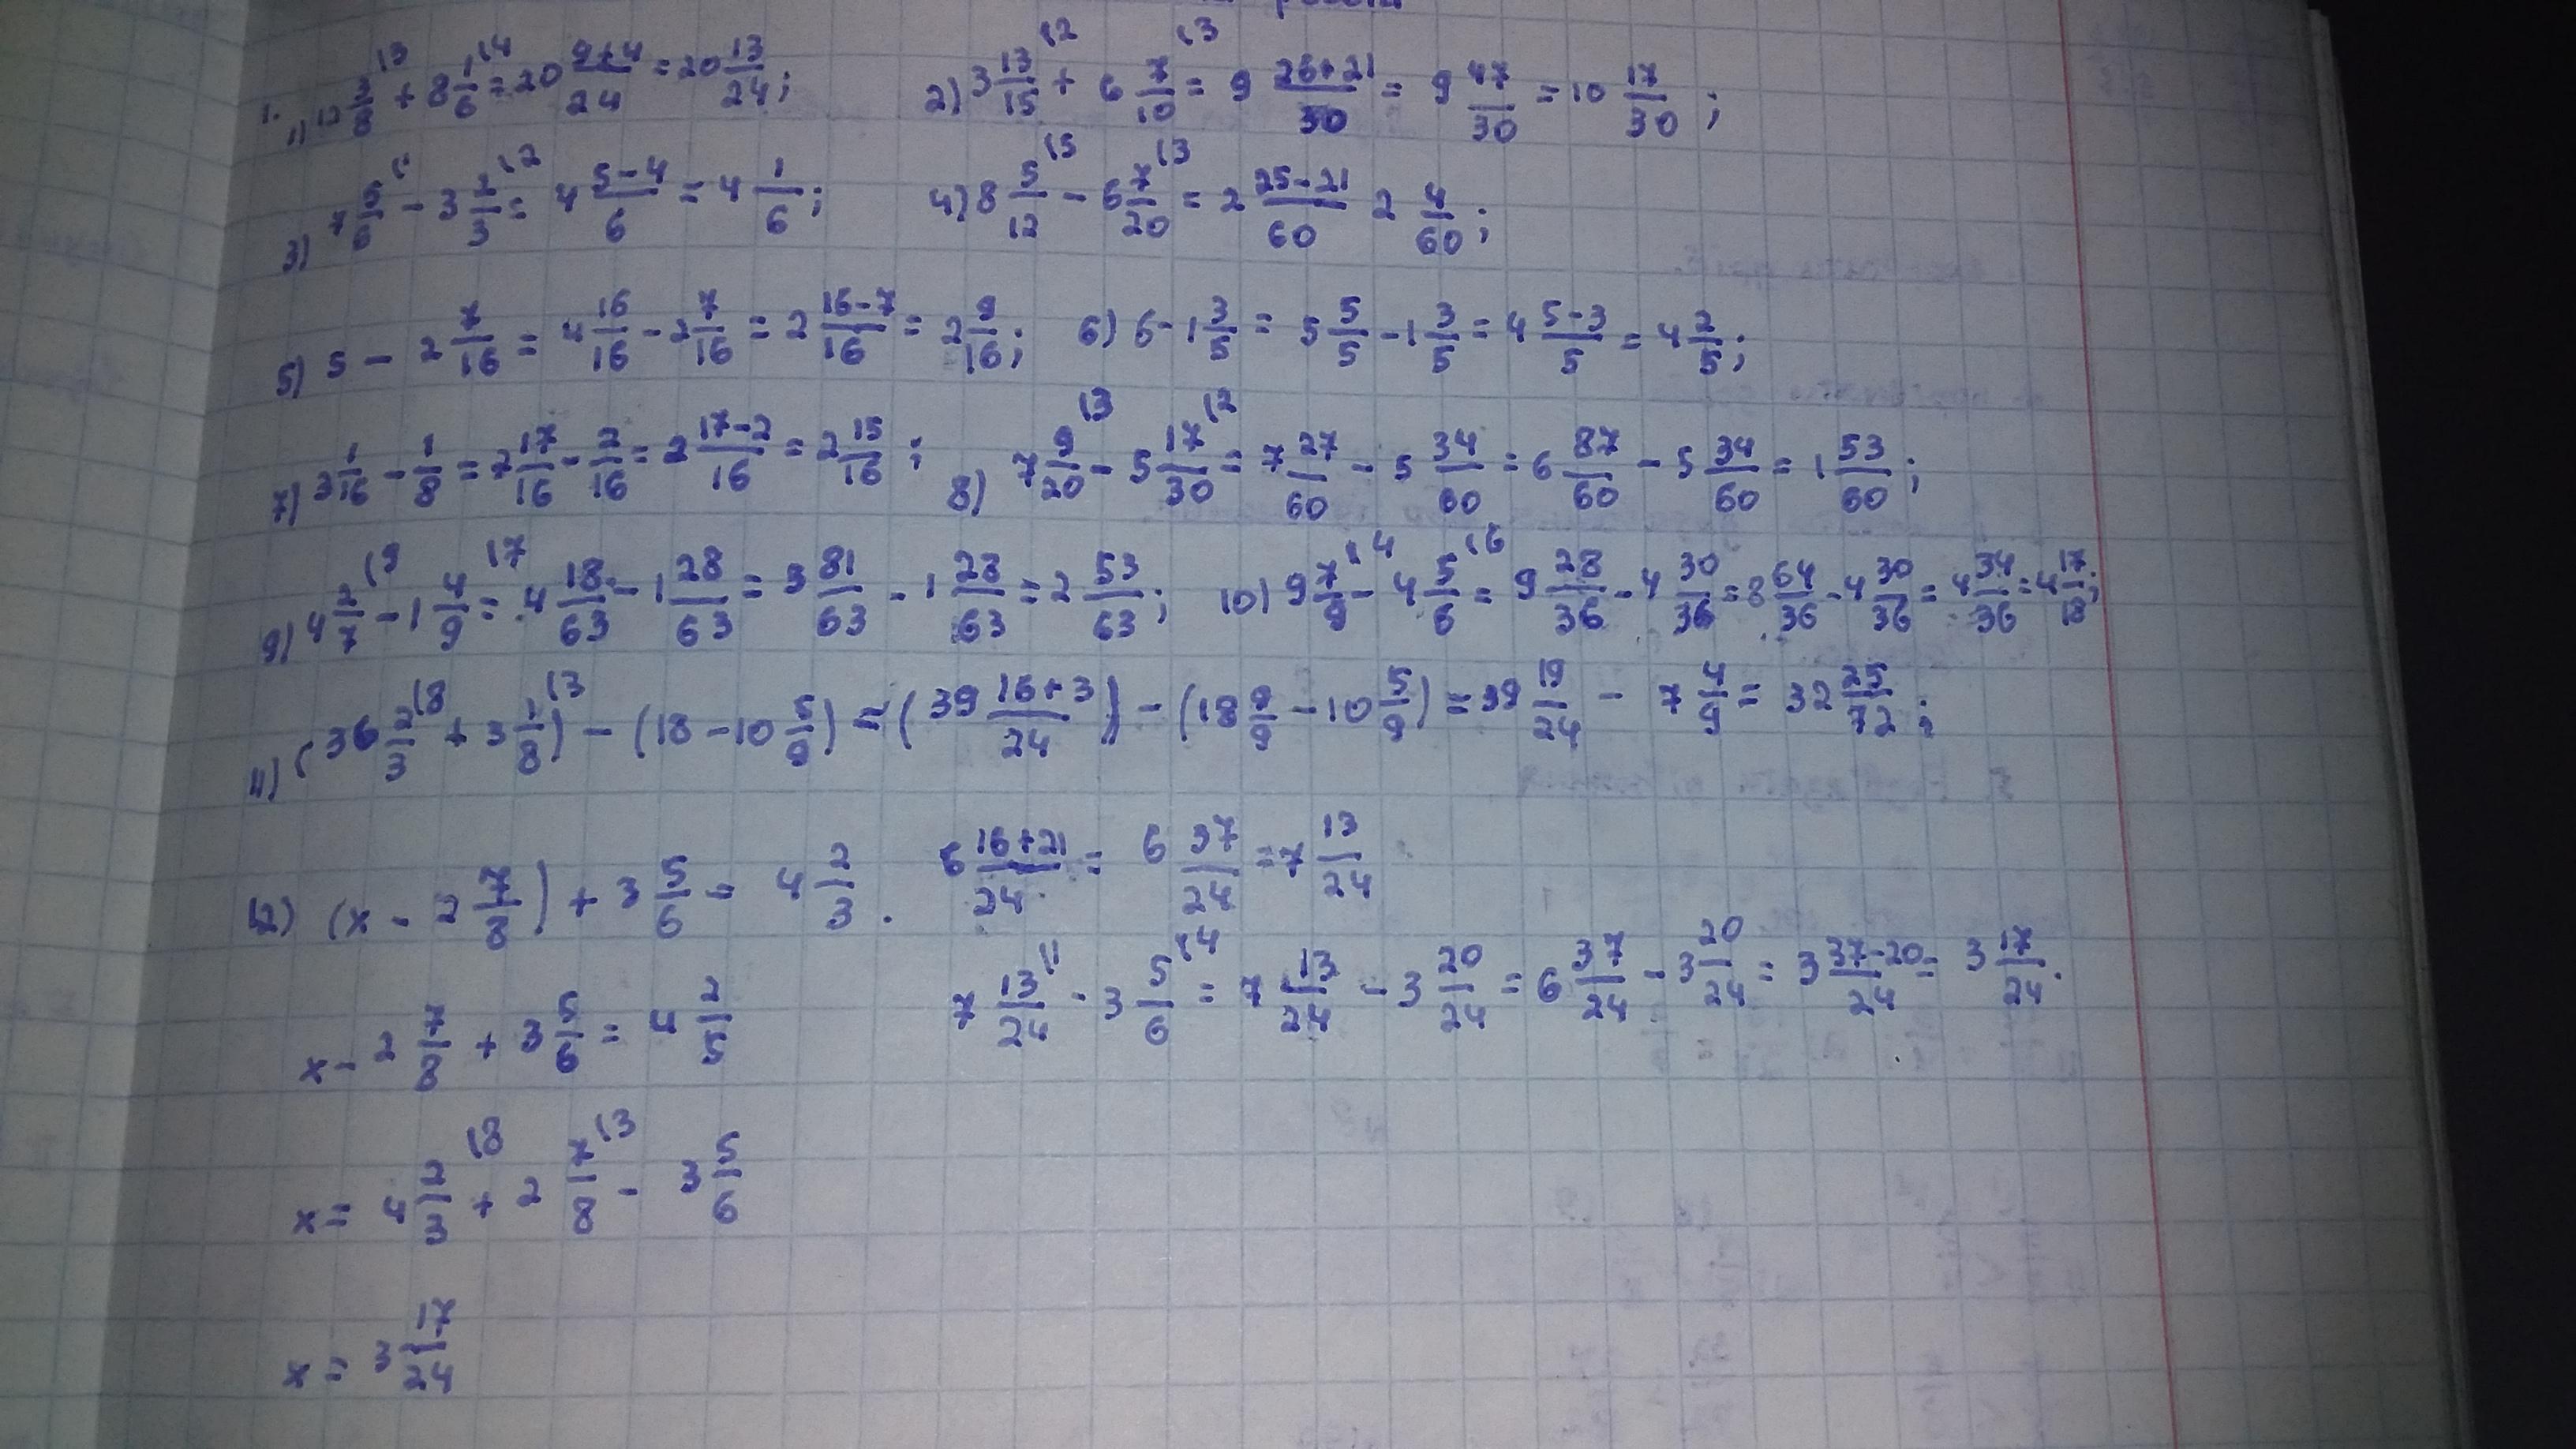 1. 1) 12 3/8 \3 + 8 1/6 \4 = 20 (9+4)/24 = 20 13/24; 2) 3 13/15 \2 + 6 7/10 \3 = 9 (26+21)/30 = 9 47/30 = 10 17/30;
3) 7 5/6 \1 - 3 2/3 \2 = 4 (5-4)/6 = 4 1/6; 4) 8 5/12 \5 - 6 7/20 \3 = 2 (25-21)/60 2 4/60;
5) 5 - 2 7/16 = 4 16/16 - 2 7/16 = 2 (16-7)/16 = 2 9/16; 6) 6 - 1 3/5 = 5 5/5 - 1 3/5 = 4 (5-3)/5 = 4 2/5;
7) 3 1/16 - 1/8 = 2 17/16 - 2/16 = 2 (17-2)/16 = 2 15/16; 8) 7 9/20 \3 - 5 17/30 \2 = 7 27/60 - 5 34/60 = 6 87/60 - 5 34/60 = 1 53/60;
9) 4 2/7 \9 - 1 4/9 \7 = 4 18/63 - 1 28/63 = 3 81/63 - 1 28/63 = 2 53/63; 10) 9 7/9 \4 - 4 5/6 \6 = 9 28/36 - 4 30/36 = 8 64/36 - 4 30/36 = 4 34/36 = 4 17/18;
11) (36 2/3 \8 + 3 1/8 \3) - (18 - 10 5/9) = (39 (16+3)/24) - (18 9/9 - 10 5/9) = 39 19/24 - 7 4/9 = 32 25/72;
12) (x - 2 7/8) + 3 5/6 = 4 2/3. 6 (16+21)/24 = 6 37/24 = 7 13/24
x - 2 7/8 + 3 5/6 = 4 2/5 7 13/24 \1 - 3 5/6 \4 = 7 13/24 - 3 20/24 = 6 37/24 - 3 20/24 = 3 (37-20)/24 = 3 17/24.
x = 4 2/3 \8 + 2 7/8 \3 - 3 5/6
x = 3 17/24